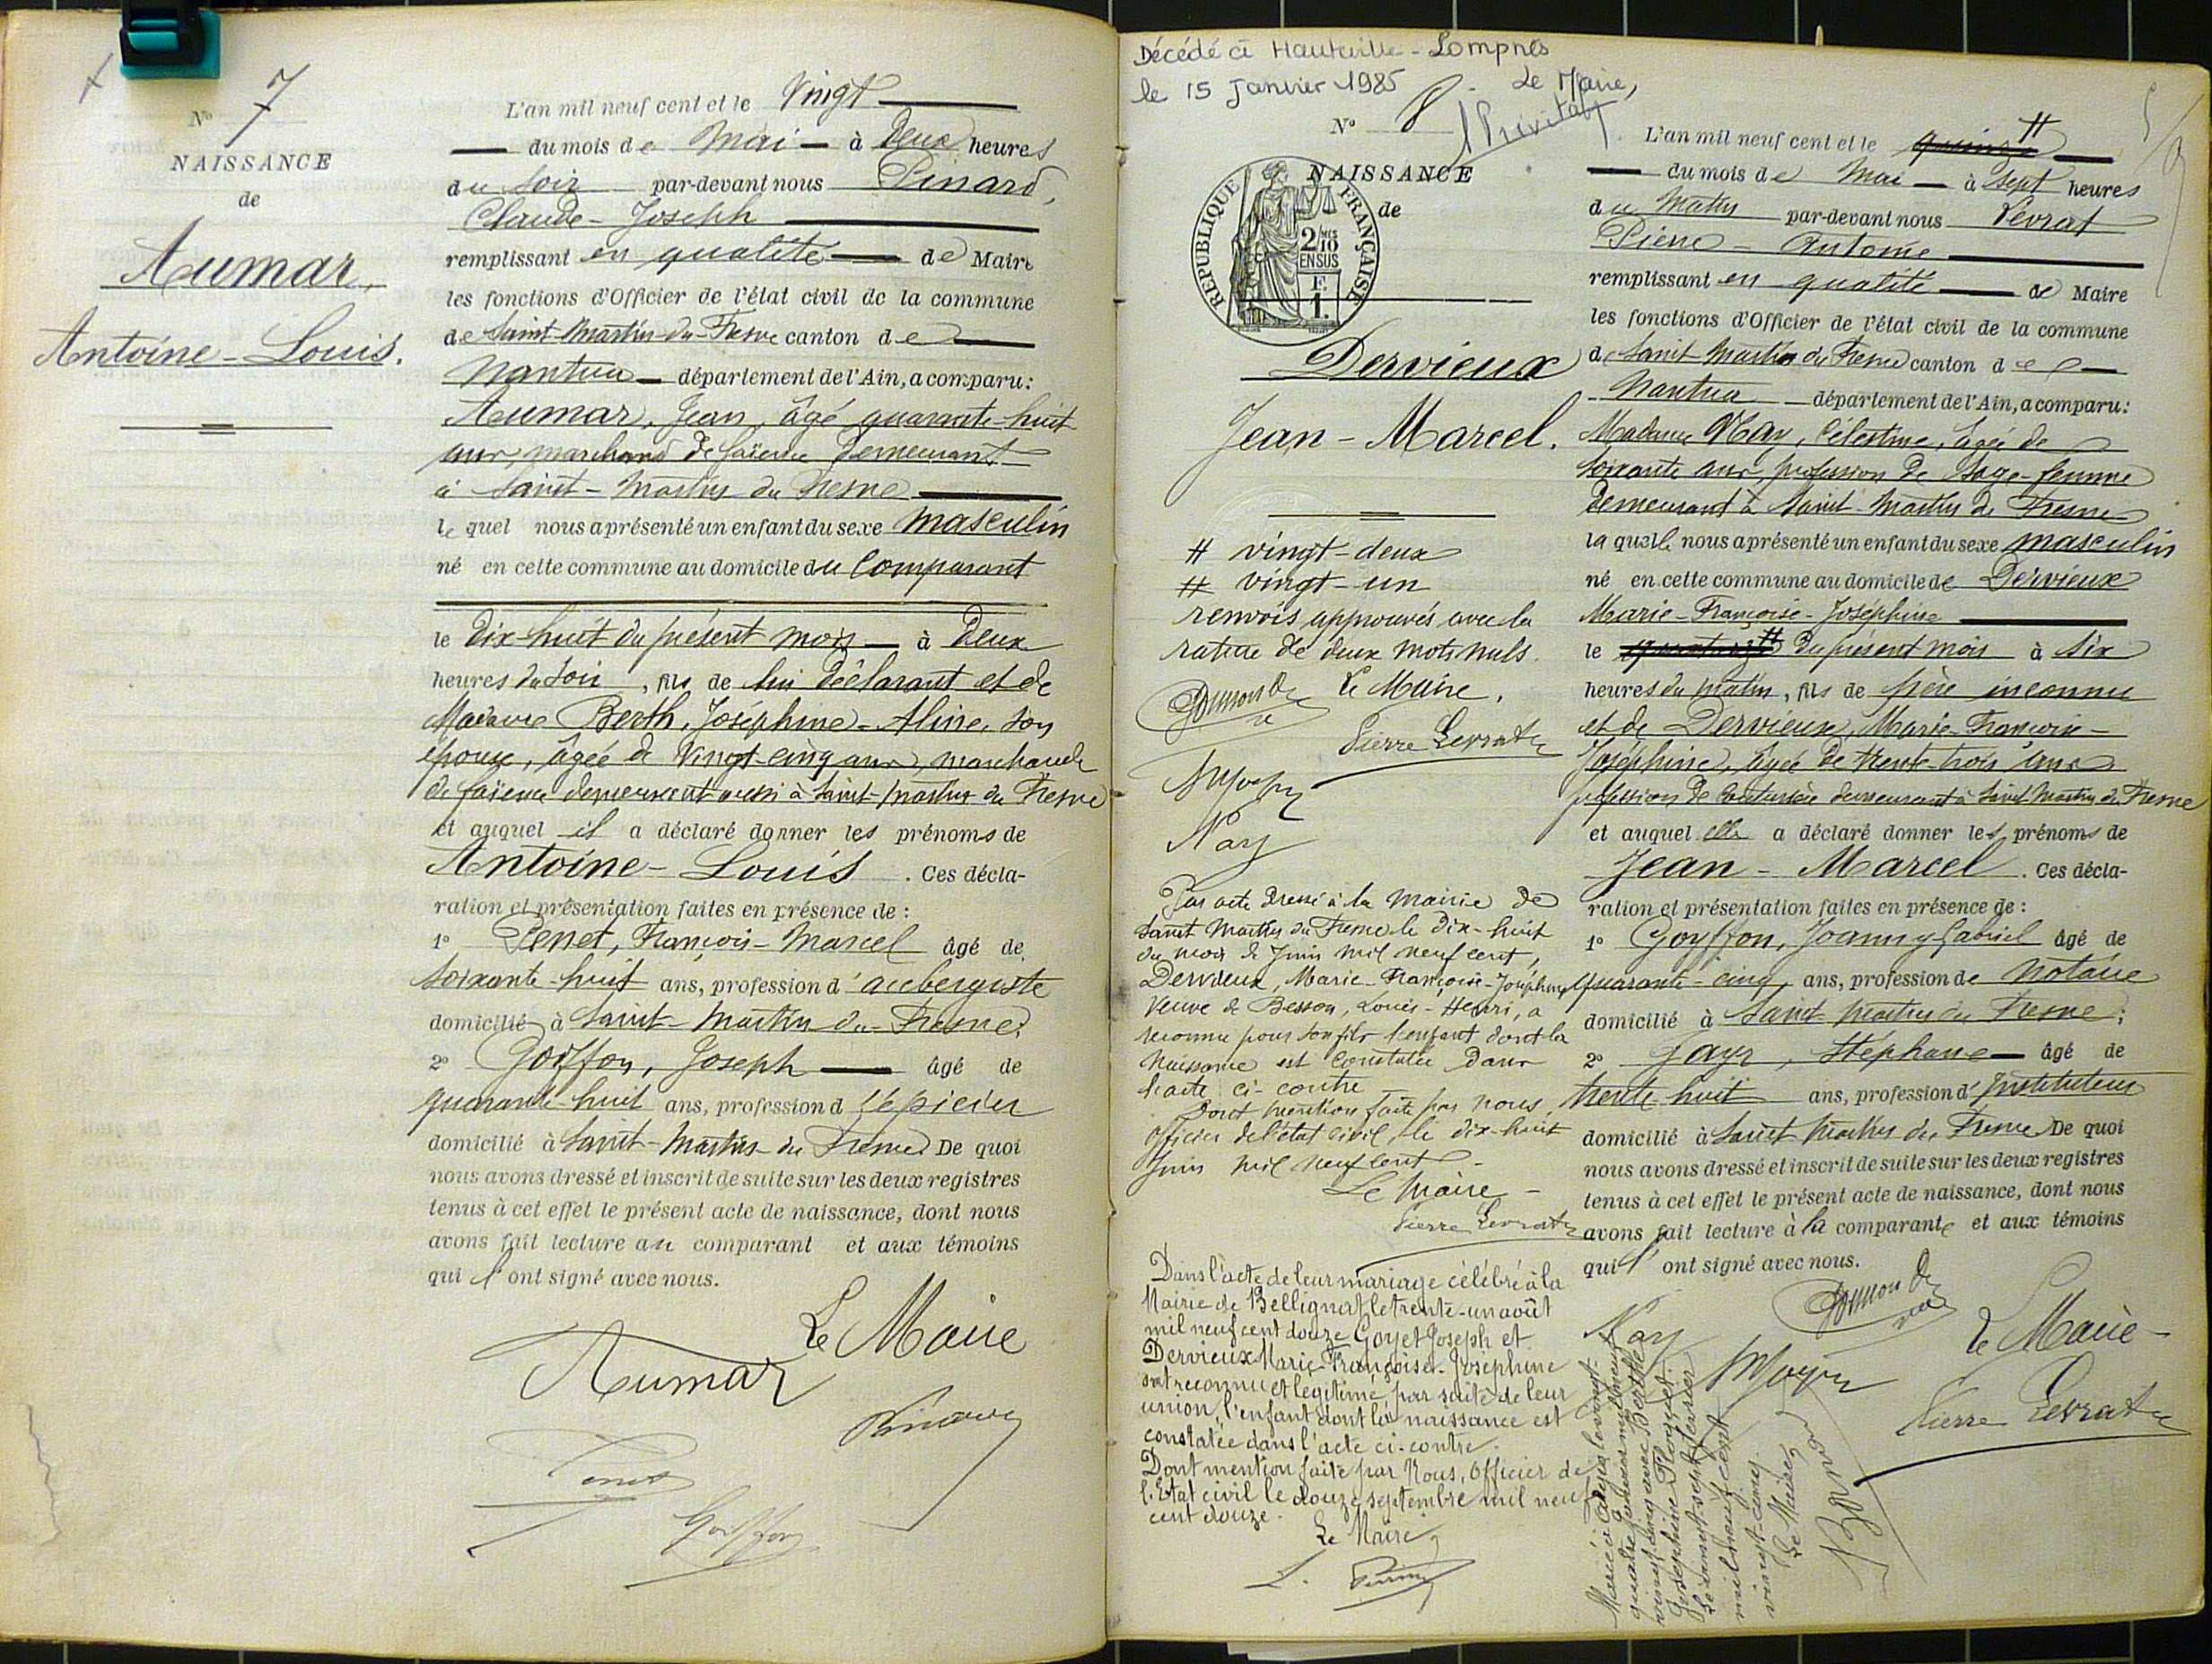 N° 7
NAISSANCE
de
Aumar,
Antoine-Louis.
L'an mil neuf cent et le Vingt
du mois de Mai à Deux heures
du soir par-devant nous Pinard,
Claude-Joseph
remplissant en qualité de Maire
les fonctions d'Officier de l'état civil de la commune
de Saint-Martin-du-Fresne canton de
Nantua département de l'Ain, a comparu:
Aumar, Jean, âgé quarante-huit
ans, marchand de faïence demeurant
à Saint-Martin du Fresne
lequel nous a présenté un enfant du sexe masculin
né en cette commune au domicile du Comparant
le dix-huit du présent mois à Deux
heures du soir, fils de lui déclarant et de
Madame Berth, Joséphine-Aline, son
épouse, âgée de Vingt-cinq ans, marchande
de faïence demeurant aussi à Saint-Martin du Fresne
et auquel il a déclaré donner les prénoms de
Antoine-Louis. Ces décla-
ration et présentation faites en présence de :
1° Penet, François-Marcel âgé de
soixante-huit ans, profession d'aubergiste
domicilié à Saint-Martin du-Fresne;
2° Goiffon, Joseph âgé de
quarante-huit ans, profession d'épicier
domicilié à Saint-Martin du Fresne De quoi
nous avons dressé et inscrit de suite sur les deux registres
tenus à cet effet le présent acte de naissance, dont nous
avons fait lecture au comparant et aux témoins
qui l'ont signé avec nous.
Le Maire
Aumar
Pinard
Penet
Goiffon
Décédé à Hauteville-Lompnès
le 15 Janvier 1985. Le Maire,
N° 8
NAISSANCE
de
REPUBLIQUE FRANÇAISE
2/10
EN SUS
F.
1.
Dervieux
Jean-Marcel.
# vingt-deux
# vingt-un
renvois approuvés avec la
rature de deux mots nuls.
Le Maire,
Pierre Levrat
Nay
Par acte dressé à la Mairie de
Saint Martin du Fresne le dix-huit
du mois de Juin mil neuf cent,
Dervieux, Marie-Françoise-Joséphine
Veuve de Besson, Louis-Henri, a
reconnu pour son fils l'enfant dont la
Naissance est constatée dans
l'acte ci-contre
Dont mention faite par nous,
Officier de l'état civil, le dix-huit
Juin mil neuf cent
Le Maire
Pierre Levrat
Dans l'acte de leur mariage célébré à la
Mairie de Bellignat le trente-un août
mil neuf cent douze Goyet Joseph et
Dervieux Marie-Françoise-Joséphine
ont reconnu et légitimé par suite de leur
union, l'enfant dont la naissance est
constatée dans l'acte ci-contre.
Dont mention faite par Nous, Officier de
l'Etat civil le douze septembre mil neuf
cent douze.
Le Maire
L'an mil neuf cent et le quinze #
du mois de Mai à sept heures
du Matin par-devant nous Levrat
Pierre-Antoine
remplissant en qualité de Maire
les fonctions d'Officier de l'état civil de la commune
de Saint Martin du Fresne canton de
Nantua département de l'Ain, a comparu:
Madame Nay, Célestine, âgée de
soixante ans, profession de Sage-femme
demeurant à Saint-Martin du Fresne
laquelle nous a présenté un enfant du sexe masculin
né en cette commune au domicile de Dervieux
Marie-Françoise-Joséphine
le quatorze # du présent mois à six
heures du matin, fils de père inconnu
et de Dervieux, Marie-Françoise-
Joséphine, âgée de trente-trois ans
profession de couturière demeurant à Saint Martin du Fresne
et auquel elle a déclaré donner les prénoms de
Jean-Marcel. Ces décla-
ration et présentation faites en présence de :
1° Goyffon, Joanny Gabriel âgé de
quarante-cinq ans, profession de notaire
domicilié à Saint Martin du Fresne;
2° Jayr, Stéphane âgé de
trente huit ans, profession d'Instituteur
domicilié à Saint Martin du Fresne De quoi
nous avons dressé et inscrit de suite sur les deux registres
tenus à cet effet le présent acte de naissance, dont nous
avons fait lecture à la comparante et aux témoins
qui l'ont signé avec nous.
Nay
Le Maire
Pierre Levrat
Marié à le vingt-
quatre mil neuf cent
vingt-cinq avec Berthe
Joséphine
Le vingt-sept février
mil neuf cent
vingt-cinq.
Le Maire,